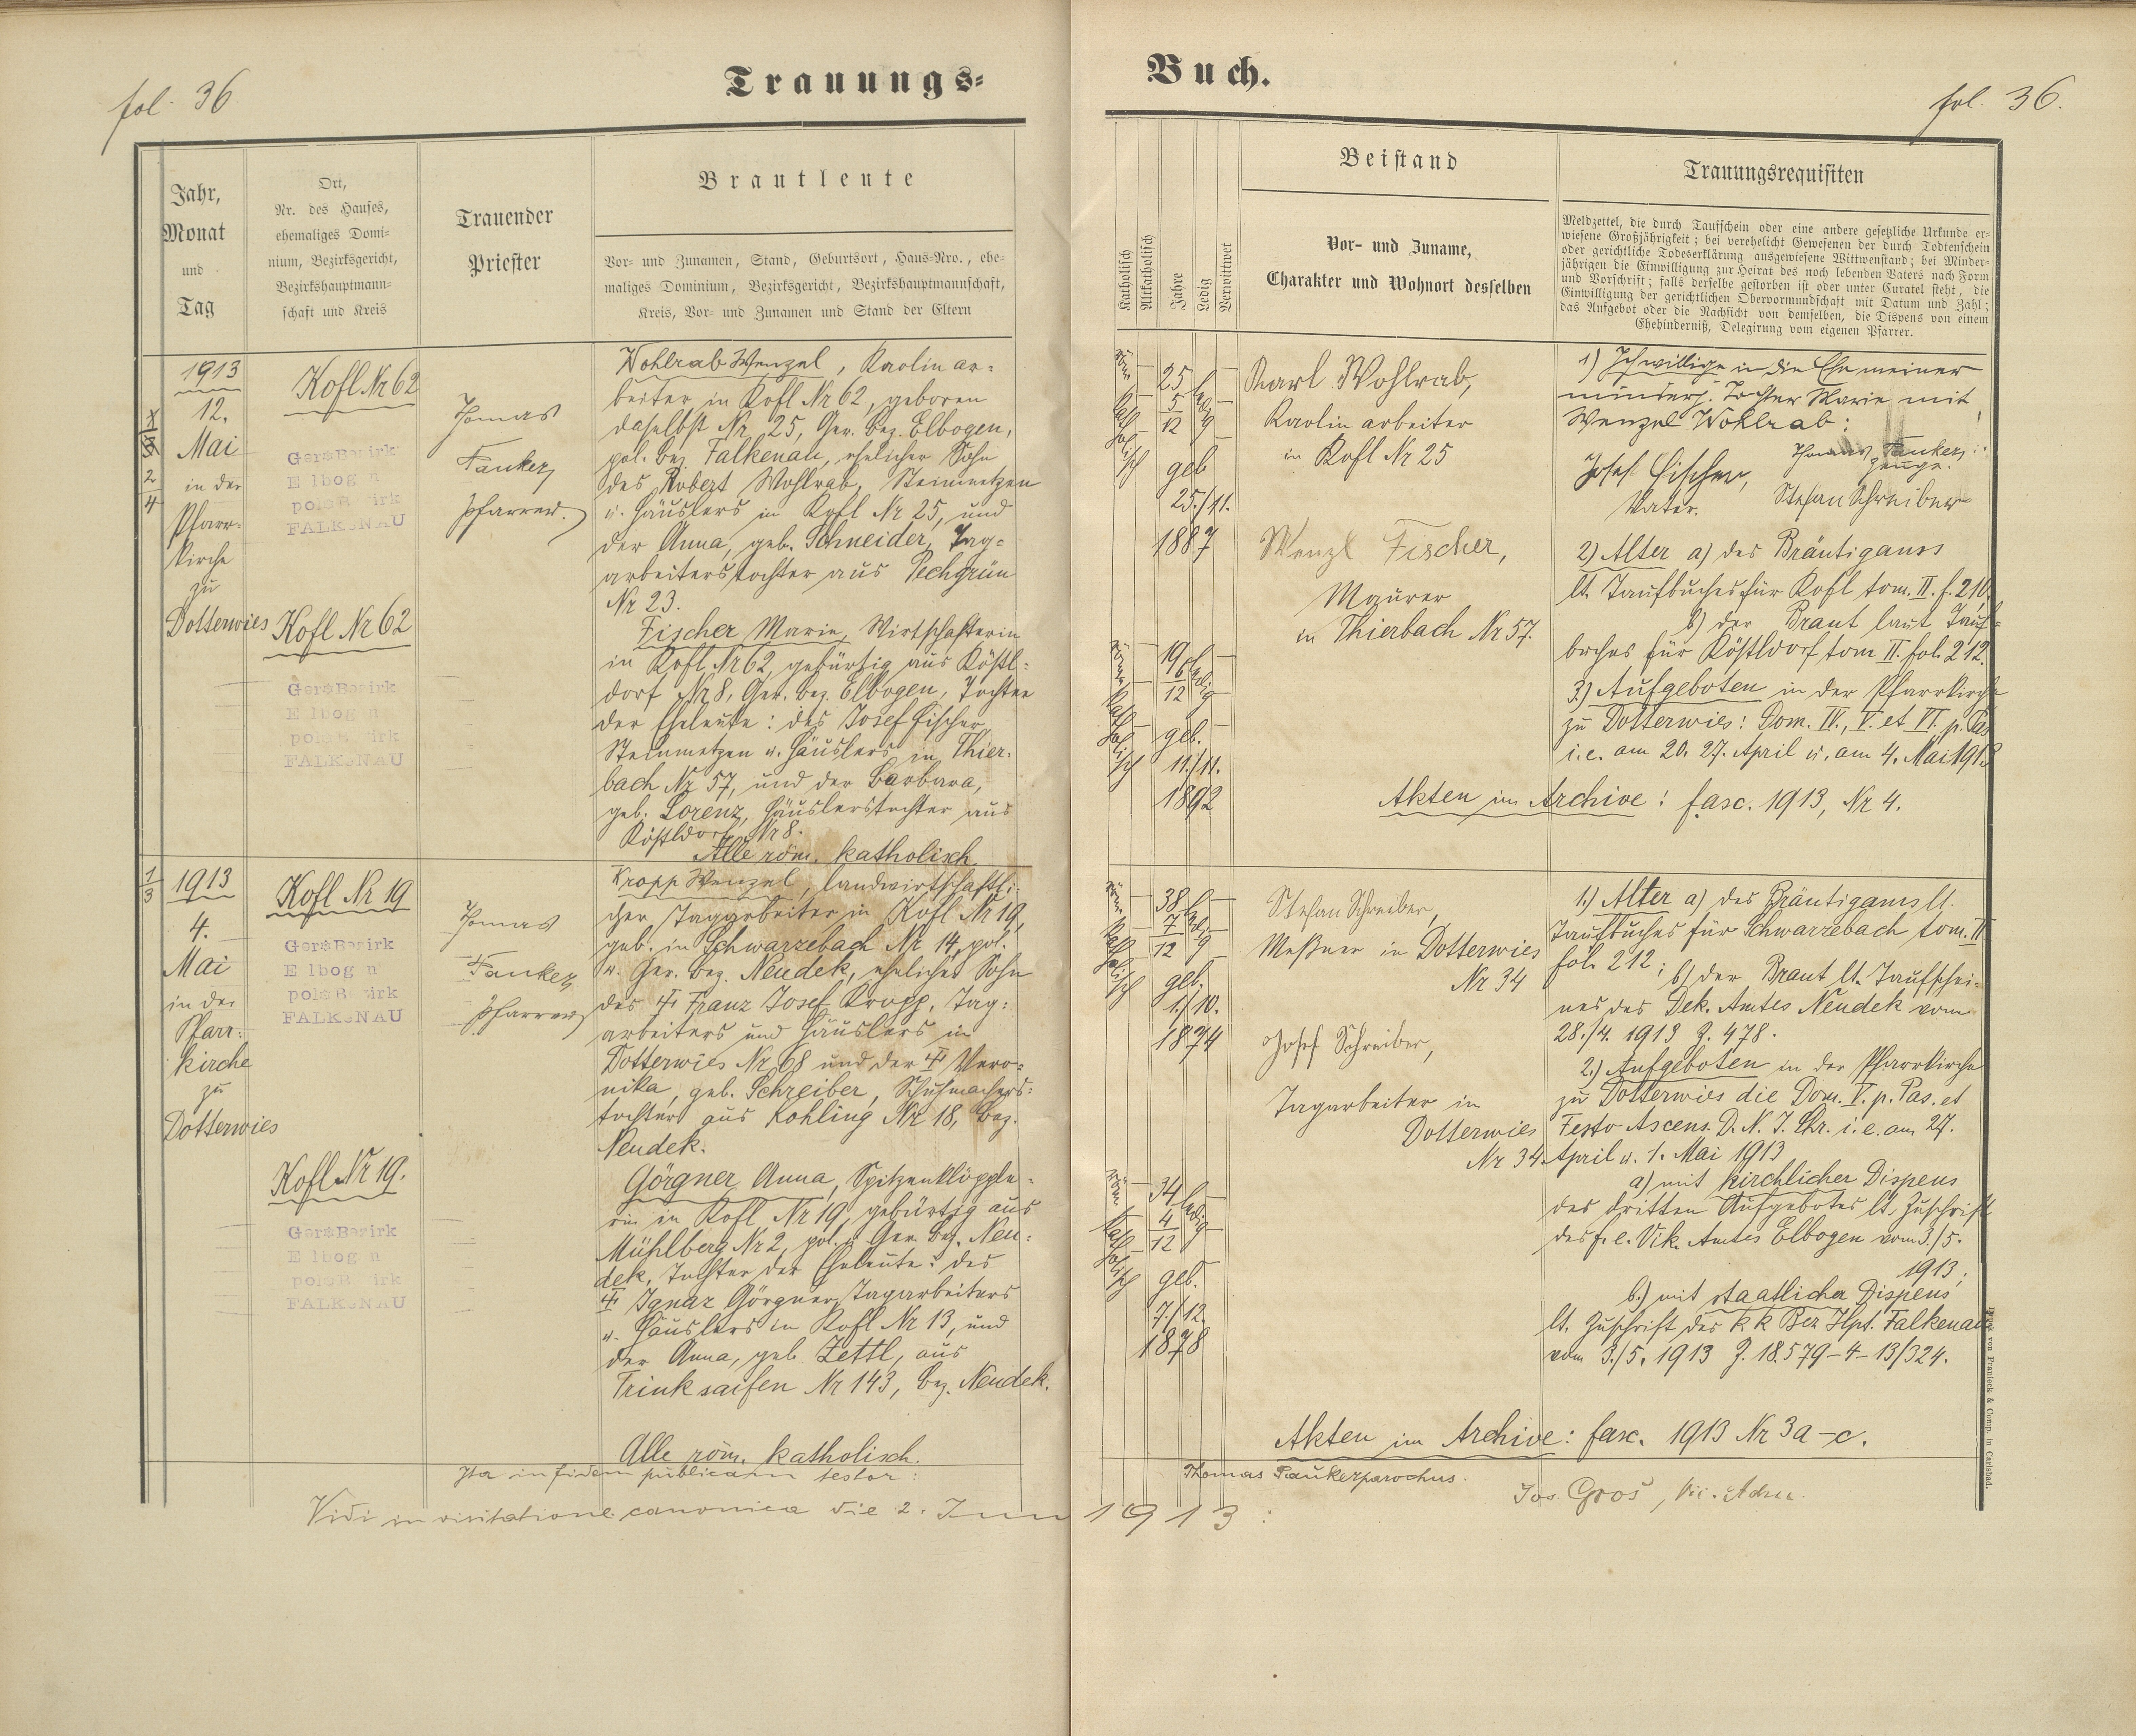 fol. 36
Trauungs=
Jahr,
Monat
und
Tag
Ort,
Nr. des Hauses,
ehemaliges Domi=
nium, Bezirksgericht,
Bezirkshauptmann=
schaft und Kreis
Trauender
Priester
Brautleute
Vor- und Zunamen, Stand, Geburtsort, Haus-Nro., ehe=
maliges Dominium, Bezirksgericht, Bezirkshauptmannschaft,
Kreis, Vor- und Zunamen und Stand der Eltern
1913
12.
Mai
in der
Pfarr-
kirche
zu
Dotterwies
2
4
Kofl Nr 62
Ger. Bezirk
Elbogen
pol. Bezirk
FALKENAU
Kofl Nr 62
Ger. Bezirk
Elbogen
pol. Bezirk
FALKENAU
Thomas
Pfarrer.
Wohlrab Wenzel, Kaolin ar=
beiter in Kofl Nr 62, geboren
daselbst Nr 25, Ger. bez. Elbogen,
pol. bez. Falkenau, ehelicher Sohn
des Robert Wohlrab, Steinmetzen
u. Häuslers in Kofl Nr 25, und
der Anna, geb. Schneider, Tag=
arbeiterstochter aus Pechgrün
Nr 23.
Fischer Marie, Wirtschafterin
in Kofl Nr 62, gebürtig aus Köstl=
dorf Nr 8, Ger. bez. Elbogen, Tochter
der Eheleute: des Josef Fischer
Steinmetzen u. Häuslers in Thier-
bach Nr 57, und der Barbara,
geb. Lorenz, Häuslerstochter aus
Köstldorf Nr 8.
Alle röm. katholisch.
1
3
1913
4.
Mai
in der
Pfarr:
kirche
zu
Dotterwies
Kofl Nr 19
Ger. Bezirk
Elbogen
pol. Bezirk
FALKENAU
Kofl Nr 19.
Ger. Bezirk
Elbogen
pol. Bezirk
FALKENAU
Thomas
Pfarrer
Kropp Wenzel, landwirtschaftli-
cher Tagarbeiter in Kofl Nr 19,
geb. in Schwarzebach Nr 14, pol.
u. Ger. bez. Neudek, ehelicher Sohn
des † Franz Josef Kropp, Tag:
arbeiters und Häuslers in
Dotterwies Nr 68 und der † Vero=
nika, geb. Schreiber, Schuhmachers:
tochter aus Kohling Nr 18, bez.
Neudek.
Görgner Anna, Spitzenklöpple-
rin in Kofl Nr 19, gebürtig aus
Mühlberg Nr 2, pol. u. Ger. bez. Neu:
dek, Tochter der Eheleute: des
† Ignaz Görgner, Tagarbeiters
u. Häuslers in Kofl Nr 13, und
der Anna, geb. Zettl, aus
Trinksaifen Nr 143, bez. Neudek.
Alle röm. katholisch.
Ita in fidem publicam testor:
Vidi in visitatione canonica die 2. Juni
Buch.
fol. 36.
Katholisch
Altkatholisch
Jahre
Ledig
Verwittwet
Beistand
Vor- und Zuname,
Charakter und Wohnort desselben
Trauungsrequisiten
Meldzettel, die durch Taufschein oder eine andere gesetzliche Urkunde er-
wiesene Großjährigkeit; bei verehelicht Gewesenen der durch Todtenschein
oder gerichtliche Todeserklärung ausgewiesene Wittwenstand; bei Minder-
jährigen die Einwilligung zur Heirat des noch lebenden Vaters nach Form
und Vorschrift; falls derselbe gestorben ist oder unter Curatel steht, die
Einwilligung der gerichtlichen Obervormundschaft mit Datum und Zahl;
das Aufgebot oder die Nachsicht von demselben, die Dispens von einem
Ehehinderniß, Delegirung vom eigenen Pfarrer.
röm. katholisch
25
5
12
ledig
geb
25./11.
1887
Karl Wohlrab,
Kaolin arbeiter
in Kofl Nr 25
Wenzl Fischer,
Maurer
in Thierbach Nr 57.
1) Ich willige in die Ehe meiner
minderj. Tochter Marie mit
Wenzel Wohlrab:
Josef Fischer,
Vater.
Thomas
Zeuge.
Stefan Schreiber
2) Alter a) des Bräutigams
lt. Taufbuches für Kofl tom. II. f. 210.
b) der Braut laut Tauf=
buches für Köstldorf tom II. fol. 212.
3.) Aufgeboten in der Pfarrkirche
zu Dotterwies: Dom. IV., V. et VI. p. Pas.
i. e. am 20. 27. April u. am 4. Mai 1913
röm. katholisch
19
6
12
ledig
geb.
11./11.
1892
Akten im Archive: fasc. 1913, Nr 4.
röm. katholisch
38
7
12
ledig
geb.
1./10.
1874
Stefan Schreiber,
Meßner in Dotterwies
Nr 34
Josef Schreiber,
Tagarbeiter in
Dotterwies
Nr 34.
1.) Alter a) des Bräutigams lt.
Taufbuches für Schwarzebach tom. II
fol. 212; b) der Braut lt. Taufschei-
nes des Dek. Amtes Neudek vom
28./4. 1913 Z. 478.
2.) Aufgeboten in der Pfarrkirche
zu Dotterwies die Dom. V. p. Pas. et
Festo Ascens. D. N. J. Chr. i. e. am 27.
April u. 1. Mai 1913
a) mit kirchlicher Dispens
des dritten Aufgebotes lt. Zuschrift
des f. e. Vik. Amtes Elbogen vom 3./5.
1913;
b.) mit staatlicher Dispens
lt. Zuschrift der k k Bez Hpt. Falkenau
vom 3./5. 1913 Z. 18.579-4-13/324.
röm. katholisch
34
4
12
ledig
geb.
7./12.
1878
Akten im Archive: fasc. 1913 Nr 3a-c.
Thomas parochus.
1913:
Jos. Gros, Vic. Adm.
Druck von Franieck & Comp. in Carlsbad.